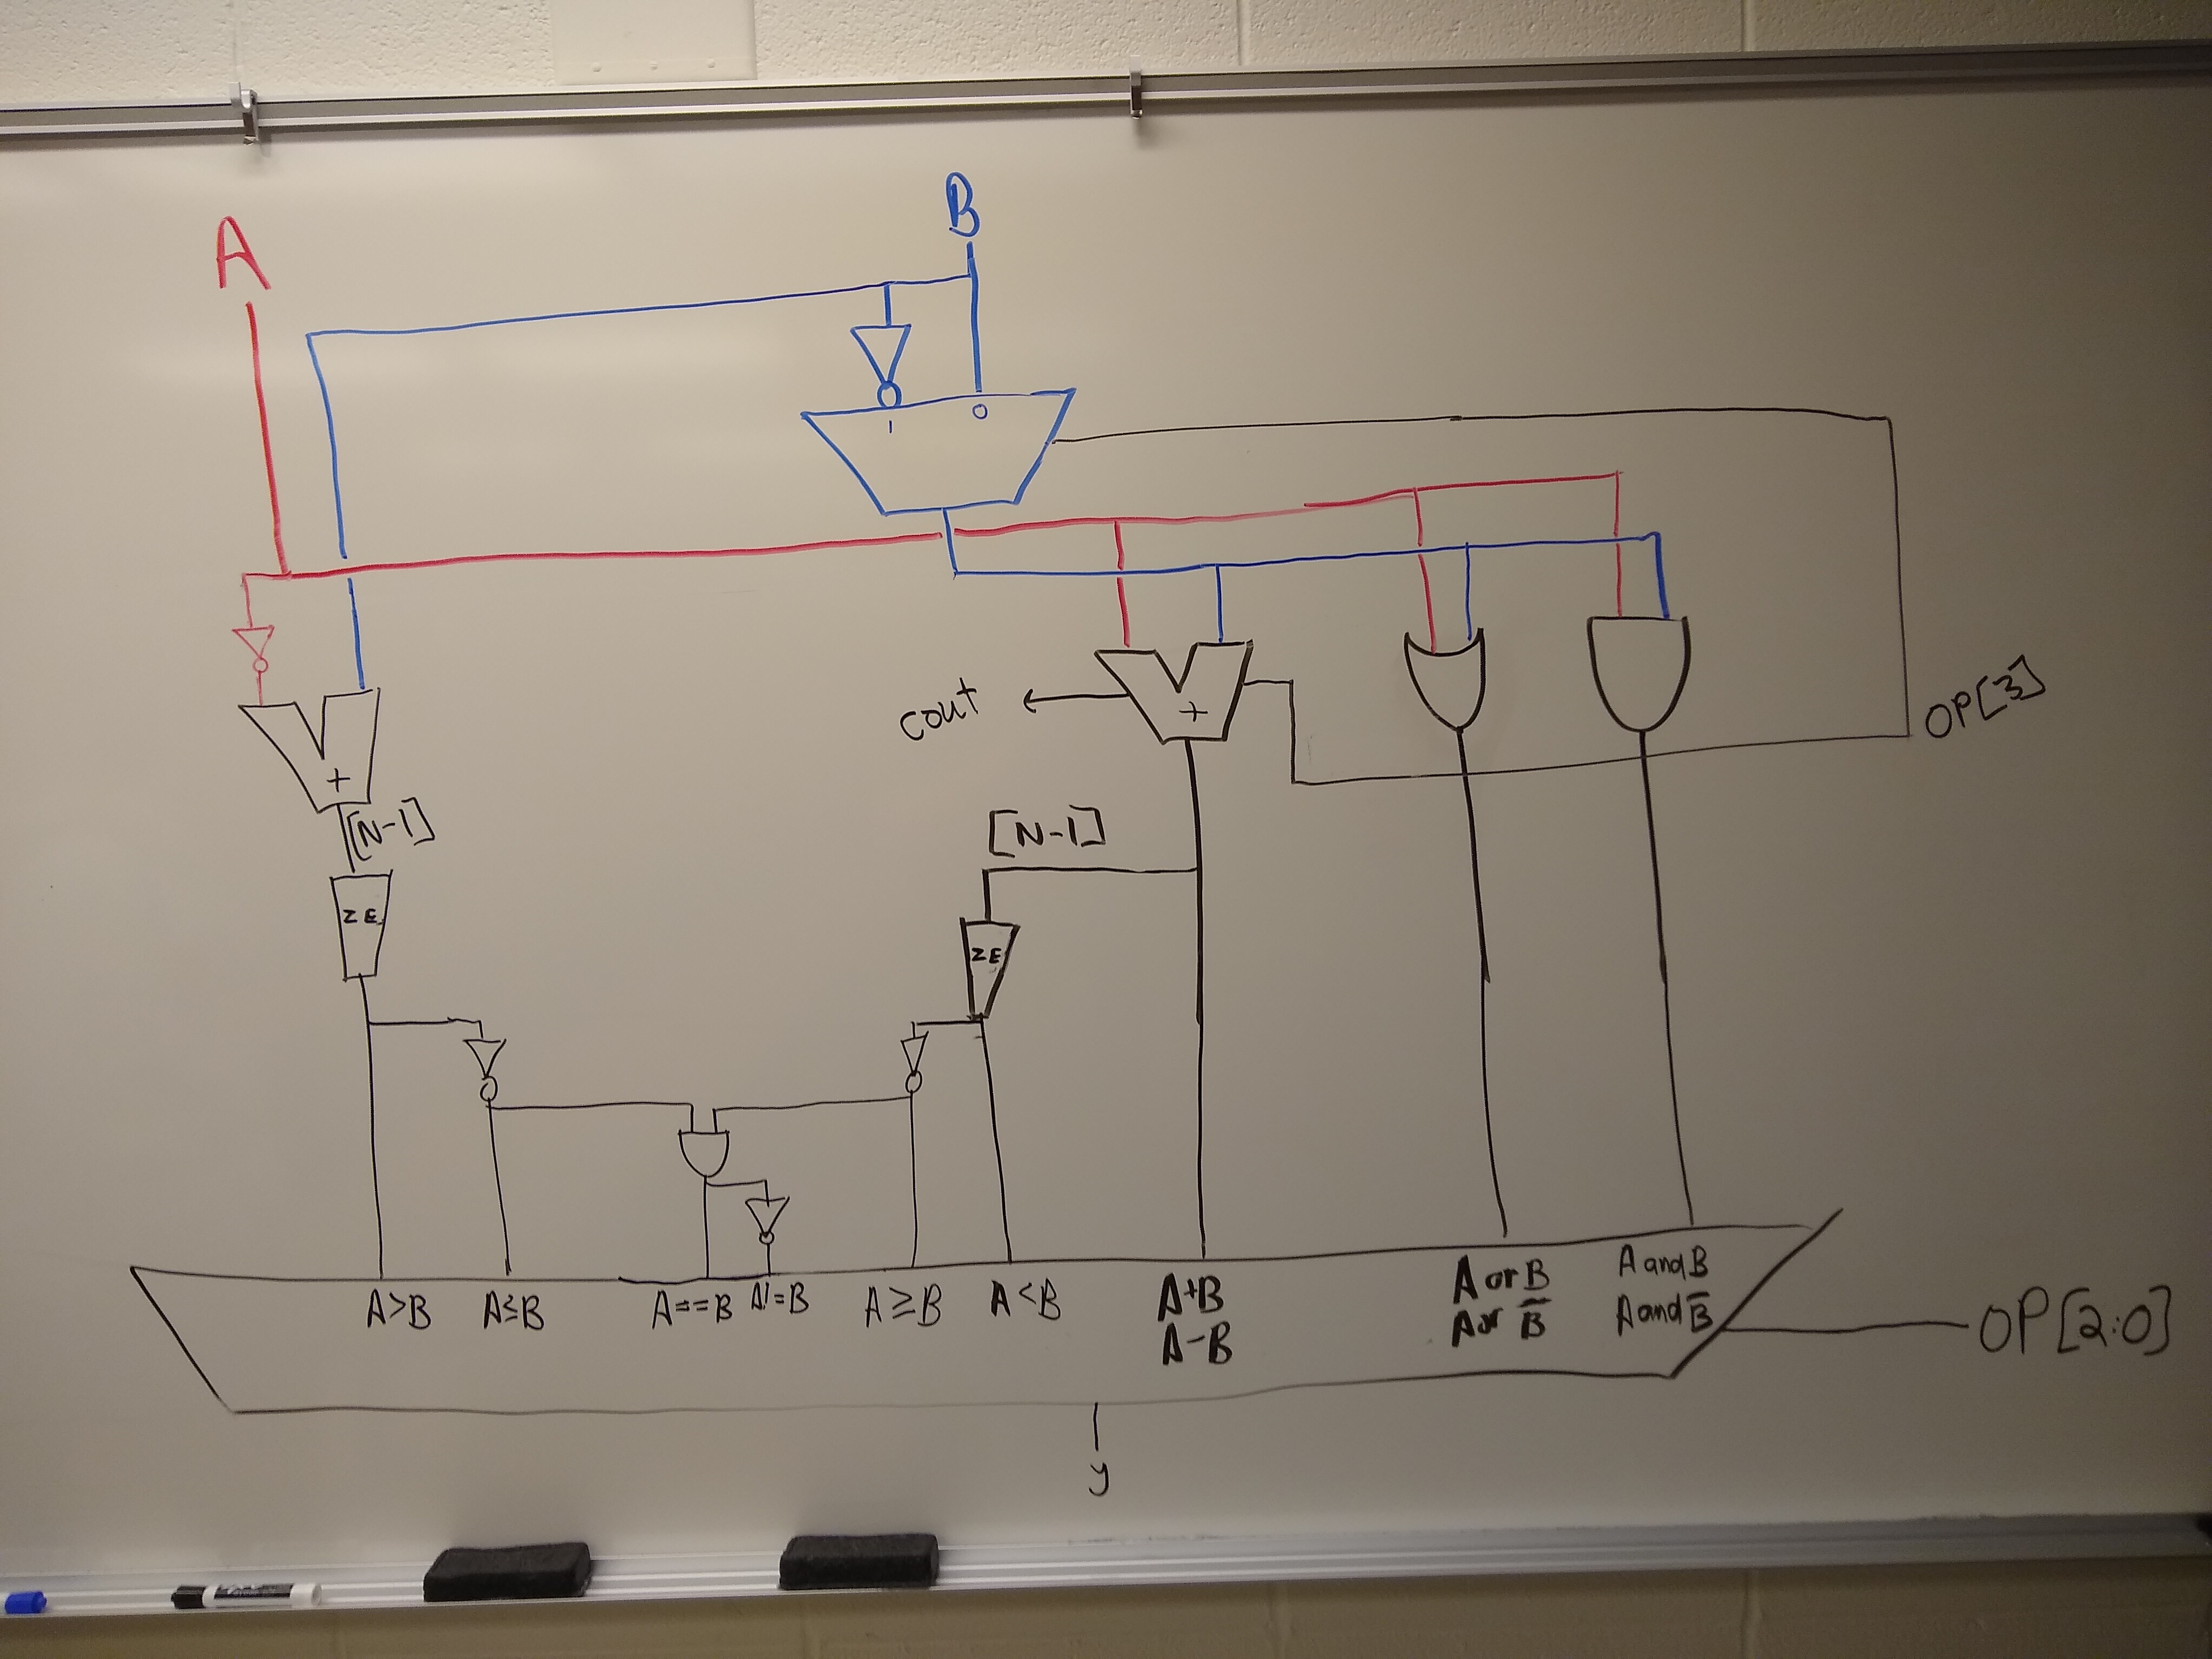 B
A
0
1
OP[3]
cout
+
+
[N-1]
[N-1]
ZE
ZE
A>B
A≤B
A==B
A!=B
A≥B
A<B
A+B
A-B
A or B
A or B̅
A and B
A and B̅
OP[2:0]
y